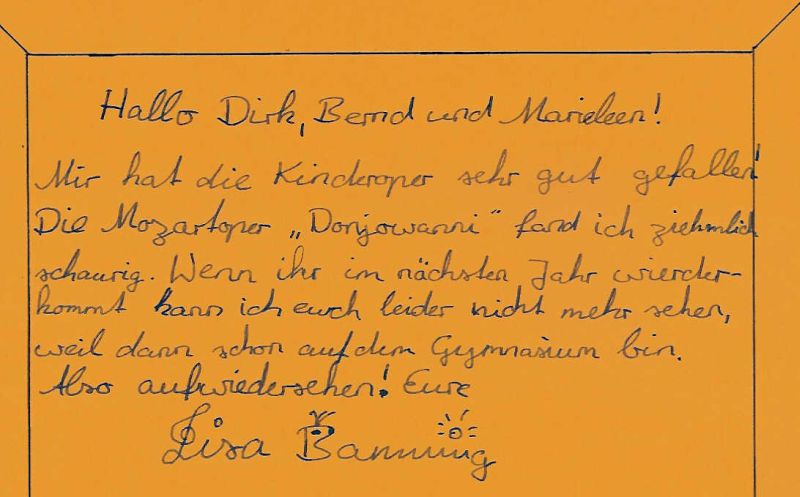 Hallo Dirk, Bernd und Marieleen!
Mir hat die Kinderoper sehr gut gefallen!
Die Mozartoper „Donjowanni" fand ich ziehmlich
schaurig. Wenn ihr im nächsten Jahr wierder-
kommt kann ich euch leider nicht mehr sehen,
weil dann schon auf dem Gymnasium bin.
Also aufwiedersehen! Eure
Lisa Banning